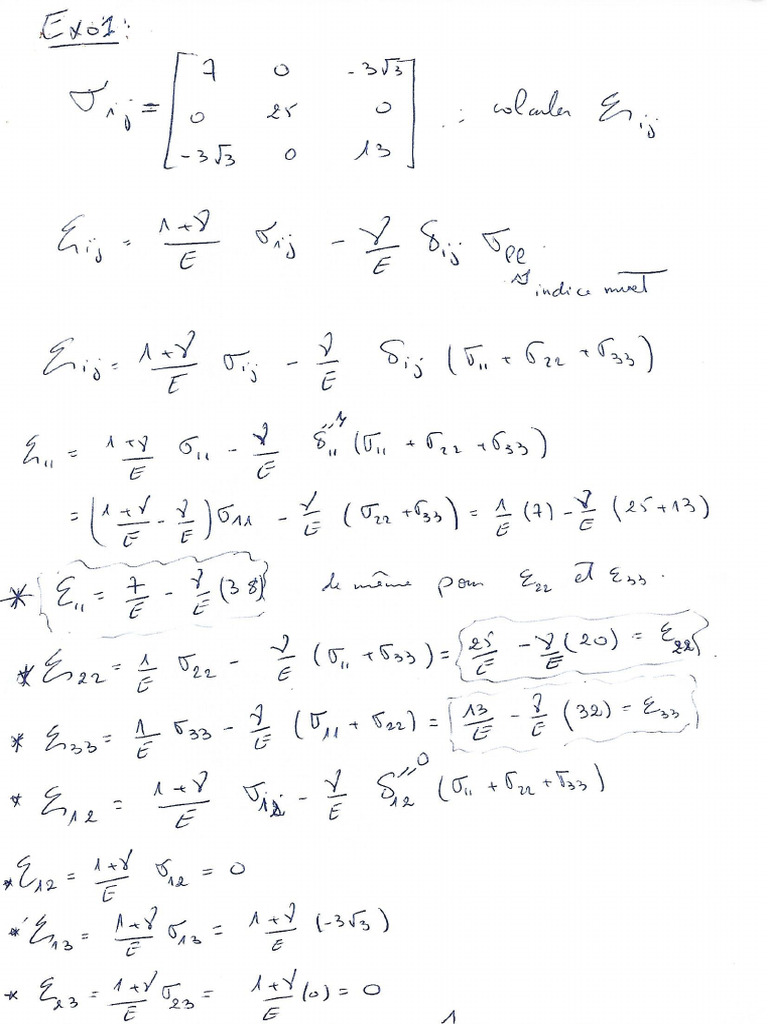 Exo1:
σij = [ 7 0 -3√3
0 25 0
-3√3 0 13 ] : calculer εij
εij = (1+γ)/E σij - γ/E δij σll
indice muet
εij = (1+γ)/E σij - γ/E δij (σ11 + σ22 + σ33)
ε11 = (1+γ)/E σ11 - γ/E δ11 (=1) (σ11 + σ22 + σ33)
= ((1+γ)/E - γ/E) σ11 - γ/E (σ22 + σ33) = 1/E (7) - γ/E (25+13)
* ε11 = 7/E - γ/E (38) de même pour ε22 et ε33.
* ε22 = 1/E σ22 - γ/E (σ11 + σ33) = 25/E - γ/E (20) = ε22
* ε33 = 1/E σ33 - γ/E (σ11 + σ22) = 13/E - γ/E (32) = ε33
* ε12 = (1+γ)/E σ12 - γ/E δ12 (=0) (σ11 + σ22 + σ33)
* ε12 = (1+γ)/E σ12 = 0
* ε13 = (1+γ)/E σ13 = (1+γ)/E (-3√3)
* ε23 = (1+γ)/E σ23 = (1+γ)/E (0) = 0
1